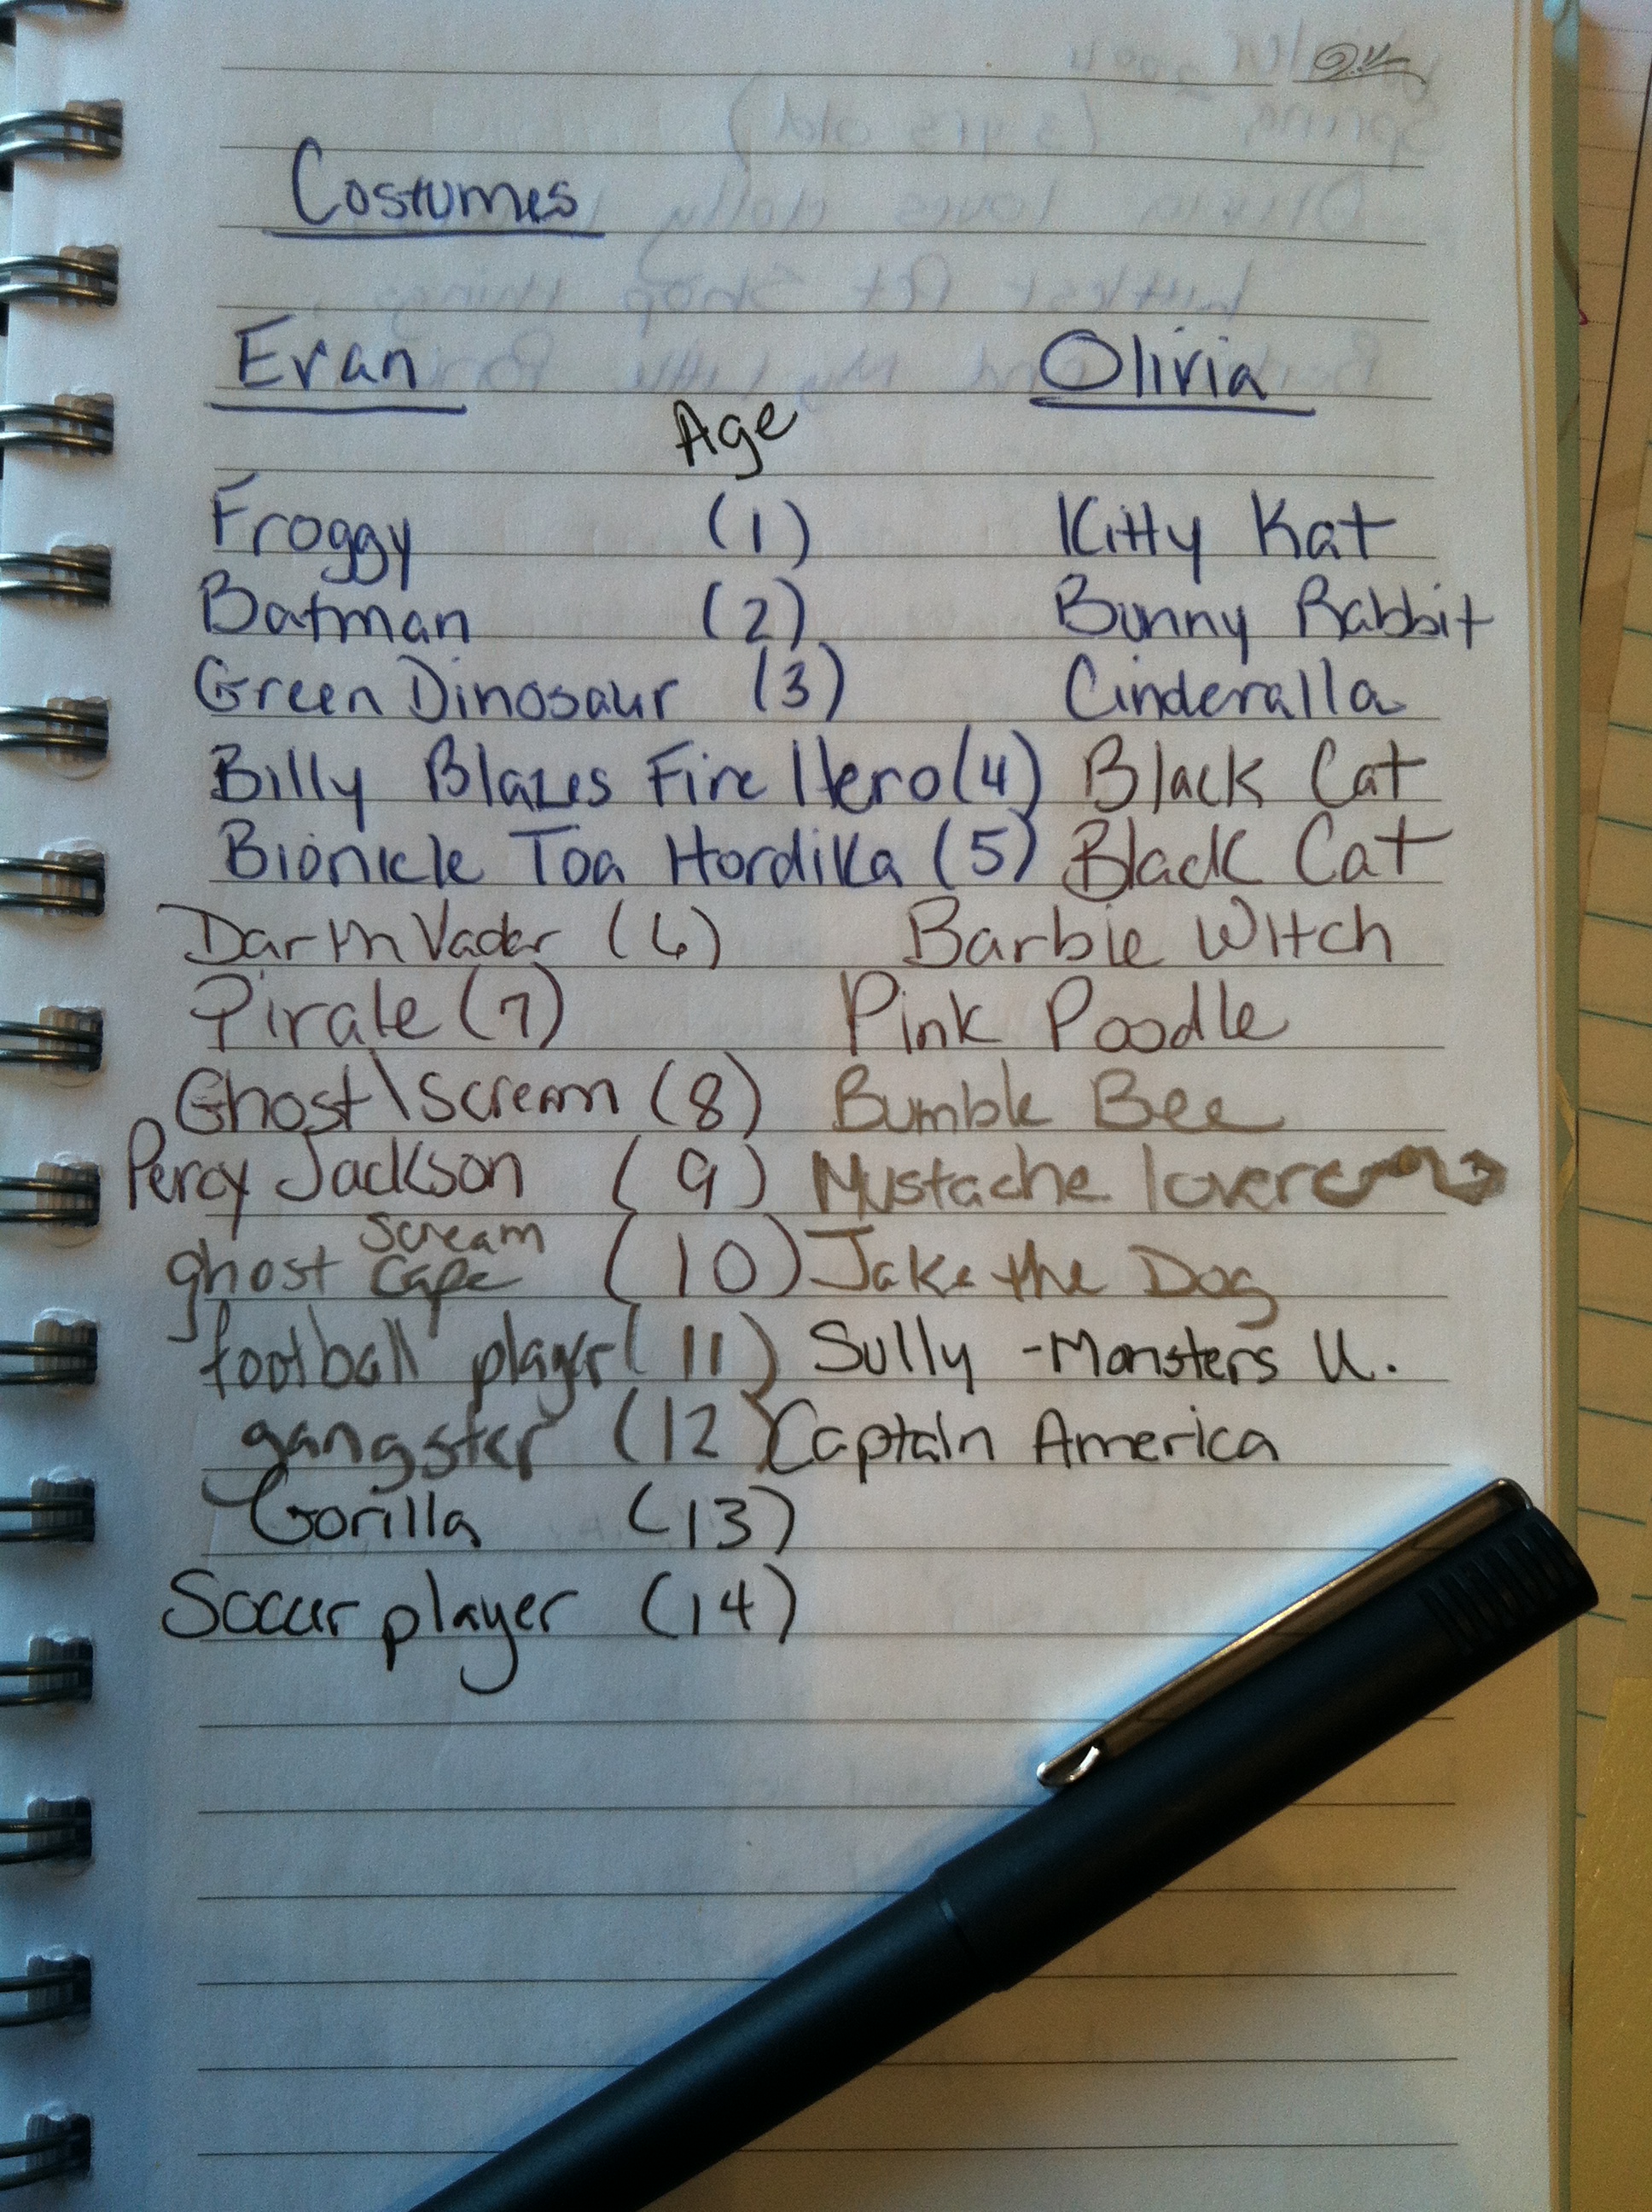 Costumes
Evan Olivia
Age
Froggy (1) Kitty Kat
Batman (2) Bunny Rabbit
Green Dinosaur (3) Cinderalla
Billy Blazes Fire Hero (4) Black Cat
Bionicle Toa Hordika (5) Black Cat
Darth Vader (6) Barbie Witch
Pirate (7) Pink Poodle
Ghost\Scream (8) Bumble Bee
Percy Jackson (9) Mustache lover
ghost Scream Cape (10) Jake the Dog
football player (11) Sully - Monsters U.
gangster (12) Captain America
Gorilla (13)
Soccur player (14)